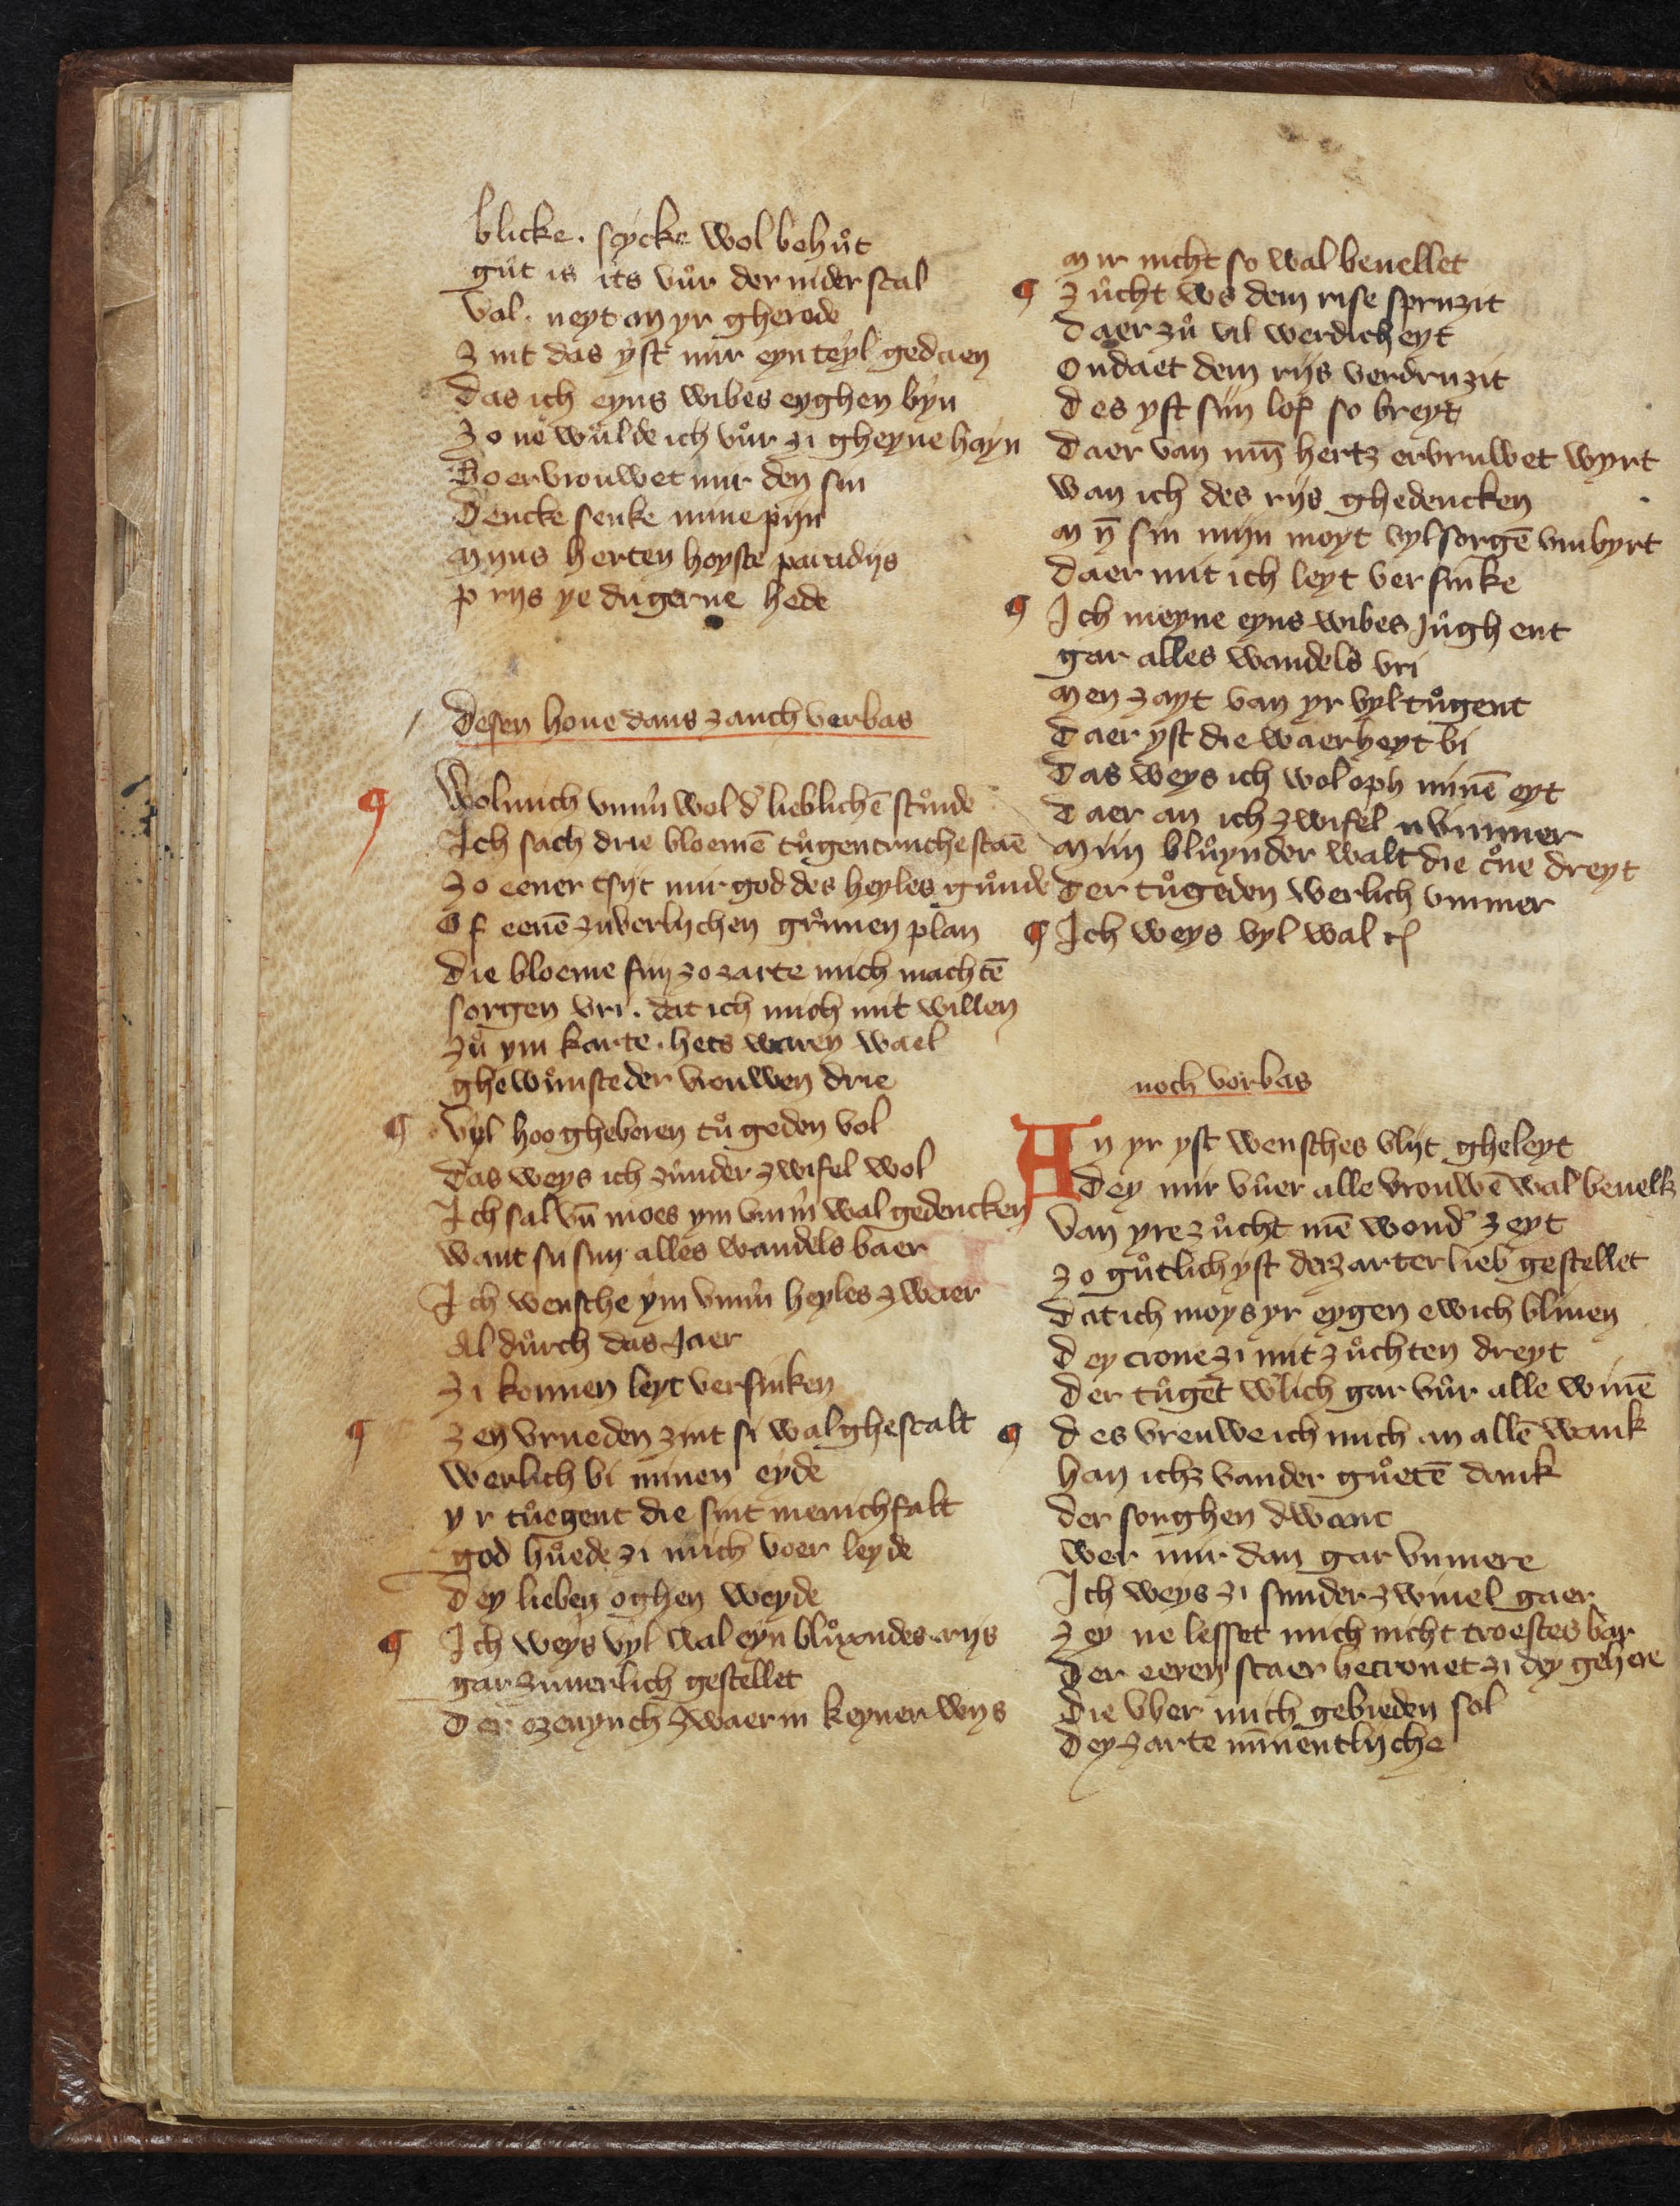 blicke . scycke wol behůt
gůt is its vůr der nider scal
val . neyt an yr gherede
Zint das yst mir eyn teyl gedaen
das ich eyns wibes eyghen byn
Zo ne wůlde ich vůr zi gheyne hayn
Do ervrouwet mir den sin
Dencke senke mine pijn
Mijns herten hoyste paradijs
prijs ye dugerne hede
Desen houe dans zanch verbas
¶ Wol mich vmm̄ wol d' lieblichē stůnde
Ich sach drie bloemē tůgentruche staē
Zo eener tsijt mir god des heyles gůnde
Of eenē zuverlychen grůnen plan
die bloeme sijn zo zarte mich machtē
sorgen vri . dat ich mich mit willen
zů ym karte . hets waren wael
ghewůnste der vrouwen drie
¶ Vyl hoogheboren tůgeden vol
das weys ich zůnder zwifel wol
Ich sal vn̄ moes ym vmm̄ wal gedencken
want si sijn alles wandels baer
Ich wensche ym vmm̄ heyles zwaer
Al důrch das Jaer
Zi konnen leyt versinken
¶ Zen vrueden zint si wal ghestalt
werlich bi minen eyde
yr tůegent die sint menichfalt
god hůede zi mich voer leyde
Dey lieben oghen weyde
¶ Ich weys vyl wal eyn blůyndes rijs
gar zuuerlich gestellet
Der ezenynch zwaer in keyner wijs
Mir nicht so wal beuellet
¶ Zůcht ws dem rise spruzit
Daer zů vil werdicheyt
Ondaet dem rijs verdruzit
Des yst sijn lop so breyt
Daer van mī hertz ervruwet wyrt
wan ich des rijs ghedencken
Mȳ sin mijn moyt vyl sorgē vmbyrt
daer mit ich leyt versinke
¶ Ich meyne eyns wibes Jůghent
gar alles wandels vri
Men zayt van yr vyl tůgent
Daer yst die waerheyt bi
Das weys ich wol oph minē eyt
Daer an ich zwifel nvmmer
Mijn blůynder walt die crͦne dreyt
Der tůgeden werlich vmmer
¶ Ich weys vyl wal
noch vorbas
An yr yst wensches vlijt gheleyt
Dey mir vůer alle vrouwē wal beuellz
Van yre zůcht mē wond' zeyt
Zo gůtlich yst der zarter lieb gestellet
Dat ich moys yr eygen ewich bliuen
Dey crone zi mit zůchten dreyt
Der tůgēt w'lich gar vůr alle wiuē
¶ Des vreuwe ich mich an allē wank
han ichz vander gůetē dank
der sorghen dwanc
wer mir dan gar vnmere
Ich weys zi sunder zwiuel gaer
Zey ne lesset mich nicht troestes bar
Der eeren scaer becronet zi dey gehere
Die vber mich gebieden sol
Dey zarte mīnentlyche